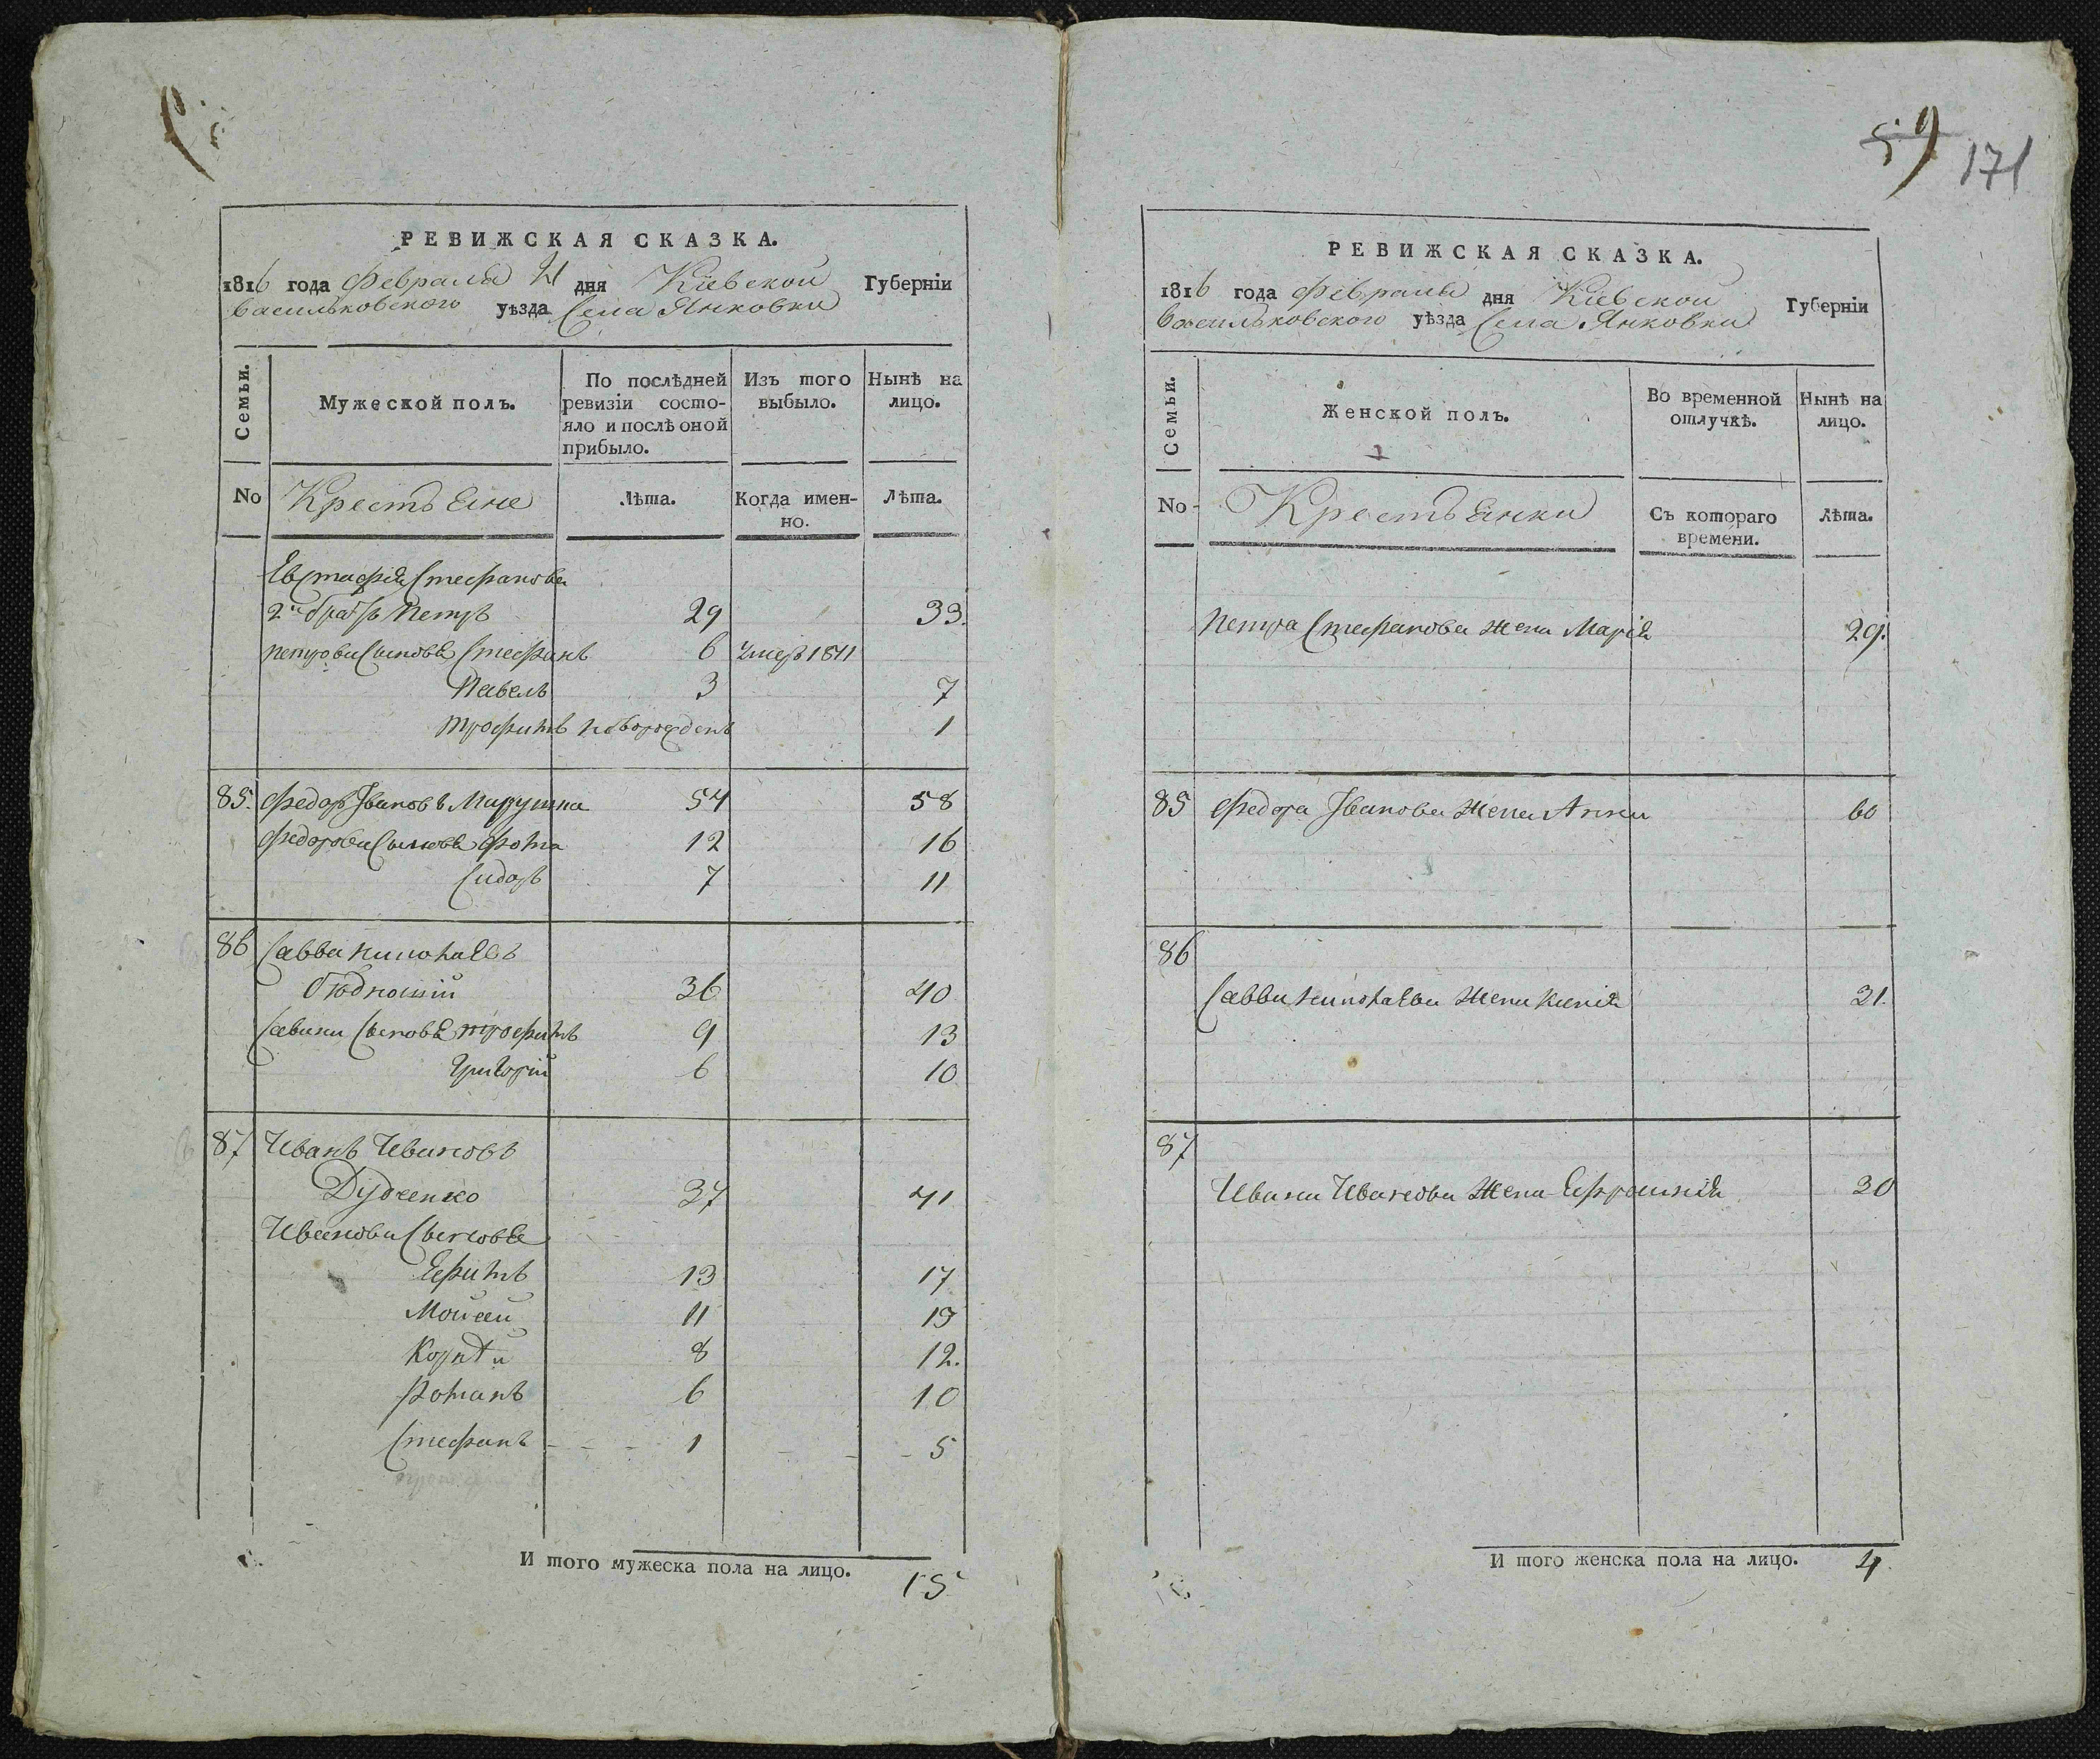 59
171
РЕВИЖСКАЯ СКАЗКА.
1816 года Февраля 21 дня Кіевской Губерніи
Васильковского уѣзда Села Янковки
Семьи.
Мужеской полъ.
По послѣдней ревизіи состояло и послѣ оной прибыло.
Изъ того выбыло.
Нынѣ на лицо.
No Крестьяне Лѣта. Когда именно. Лѣта.
Евстафія Стефанова
2й братъ Петръ 29 33.
Петрови Сыновья Стефанъ 6 умеръ 1811
Павелъ 3 7
Трофимъ новорожденъ 1
85. Федоръ Івановъ 54 58
Федорови Сыновья Фома 12 16
Сидоръ 7 11
86 Савва Николаевъ
Бѣдношій 36 40
Савини Сыновья Трофимъ 9 13
Григорій 6 10
87 Иванъ Ивановъ
Дудченко 37 41
Иванови Сыновья
Ефимъ 13 17
Мойсей 11 15
Корнѣй 8 12.
Романъ 6 10
Стефанъ - - - 1 - - 5
И того мужеска пола на лицо. 15
РЕВИЖСКАЯ СКАЗКА.
1816 года Февраля дня Кіевской Губерніи
Васильковского уѣзда Села Янковки
Семьи.
Женской полъ.
Во временной отлучкѣ.
Нынѣ на лицо.
No Крестьянки Съ котораго времени. Лѣта.
Петра Стефанова жена Марія 29.
85 Федора Іванова жена Анна 60
86
Саввы Николаева жена 31.
87
Ивана Иванова жена Ефросинія 30
И того женска пола на лицо. 4.